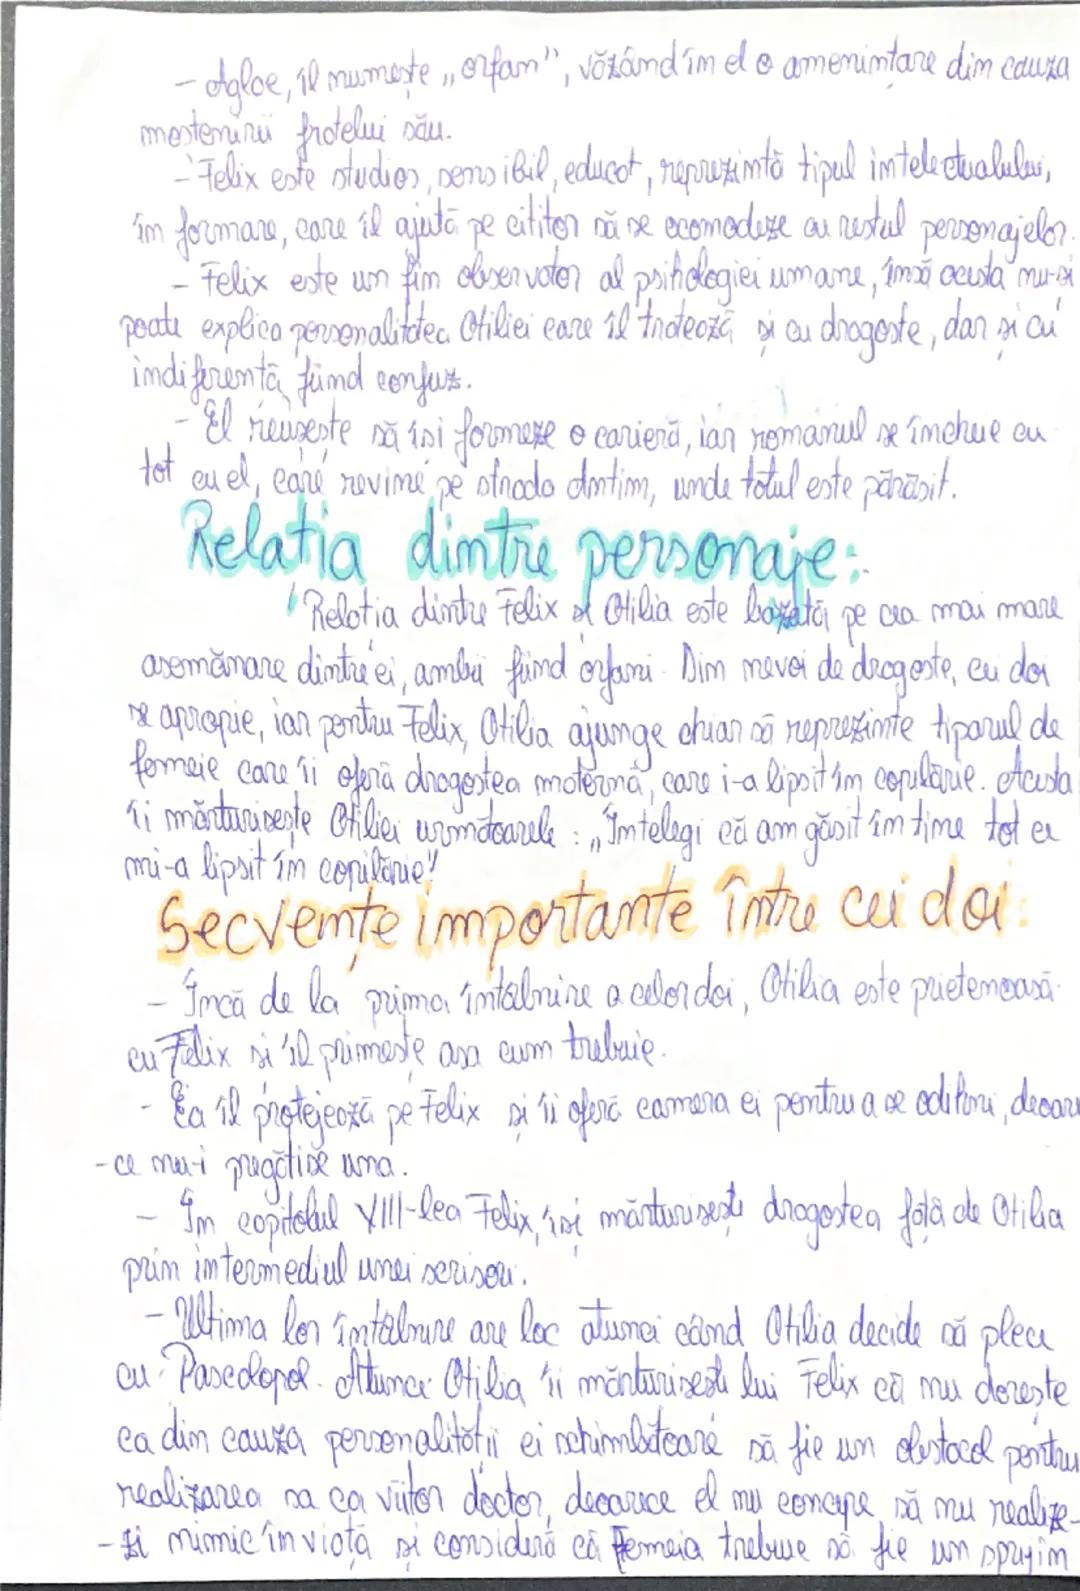 - Aglae, îl numește „orfan", văzând în el o amenințare din cauza
moștenirii fratelui său.
- Felix este studios, sensibil, educat, reprezintă tipul intelectualului,
în formare, care îl ajută pe cititor să se acomodeze cu restul personajelor.
- Felix este un fin observator al psihologiei umane, însă acesta nu-și
poate explica personalitatea Otiliei care îl tratează și cu dragoste, dar și cu
indiferență, fiind confuz.
- El reușește să își formeze o carieră, iar romanul se încheie cu
tot cu el, care revine pe strada Antim, unde totul este părăsit.
Relația dintre personaje:
Relația dintre Felix și Otilia este bazată pe cea mai mare
asemănare dintre ei, ambii fiind orfani. Din nevoi de dragoste, cei doi
se apropie, iar pentru Felix, Otilia ajunge chiar să reprezinte tiparul de
femeie care îi oferă dragostea maternă, care i-a lipsit în copilărie. Acesta
îi mărturisește Otiliei urmatoarele: „Înțelegi că am găsit în tine tot ce
mi-a lipsit în copilărie"
Secvențe importante între cei doi:
- Încă de la prima întâlnire a celor doi, Otilia este prietenoasă
cu Felix și îl primește așa cum trebuie.
- Ea îl protejează pe Felix și îi oferă camera ei pentru a se odihni, deoare-
-ce nu-i pregătise una.
- În capitolul VIII-lea Felix, își mărturisește dragostea față de Otilia
prin intermediul unei scrisori.
- Ultima lor întâlnire are loc atunci când Otilia decide să plece
cu Pascalopol. Atunci Otilia îi mărturisește lui Felix că nu dorește
ca din cauza personalității ei schimbătoare să fie un obstacol pentru
realizarea sa ca viitor doctor, deoarece el nu concepe să nu realize-
-zi nimic în viață și consideră că femeia trebuie să fie un sprijin